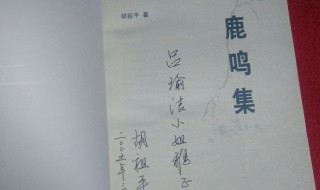 鹿鸣集
胡祖平 著
吕瑜洁小姐雅正
胡祖平
二〇〇五年